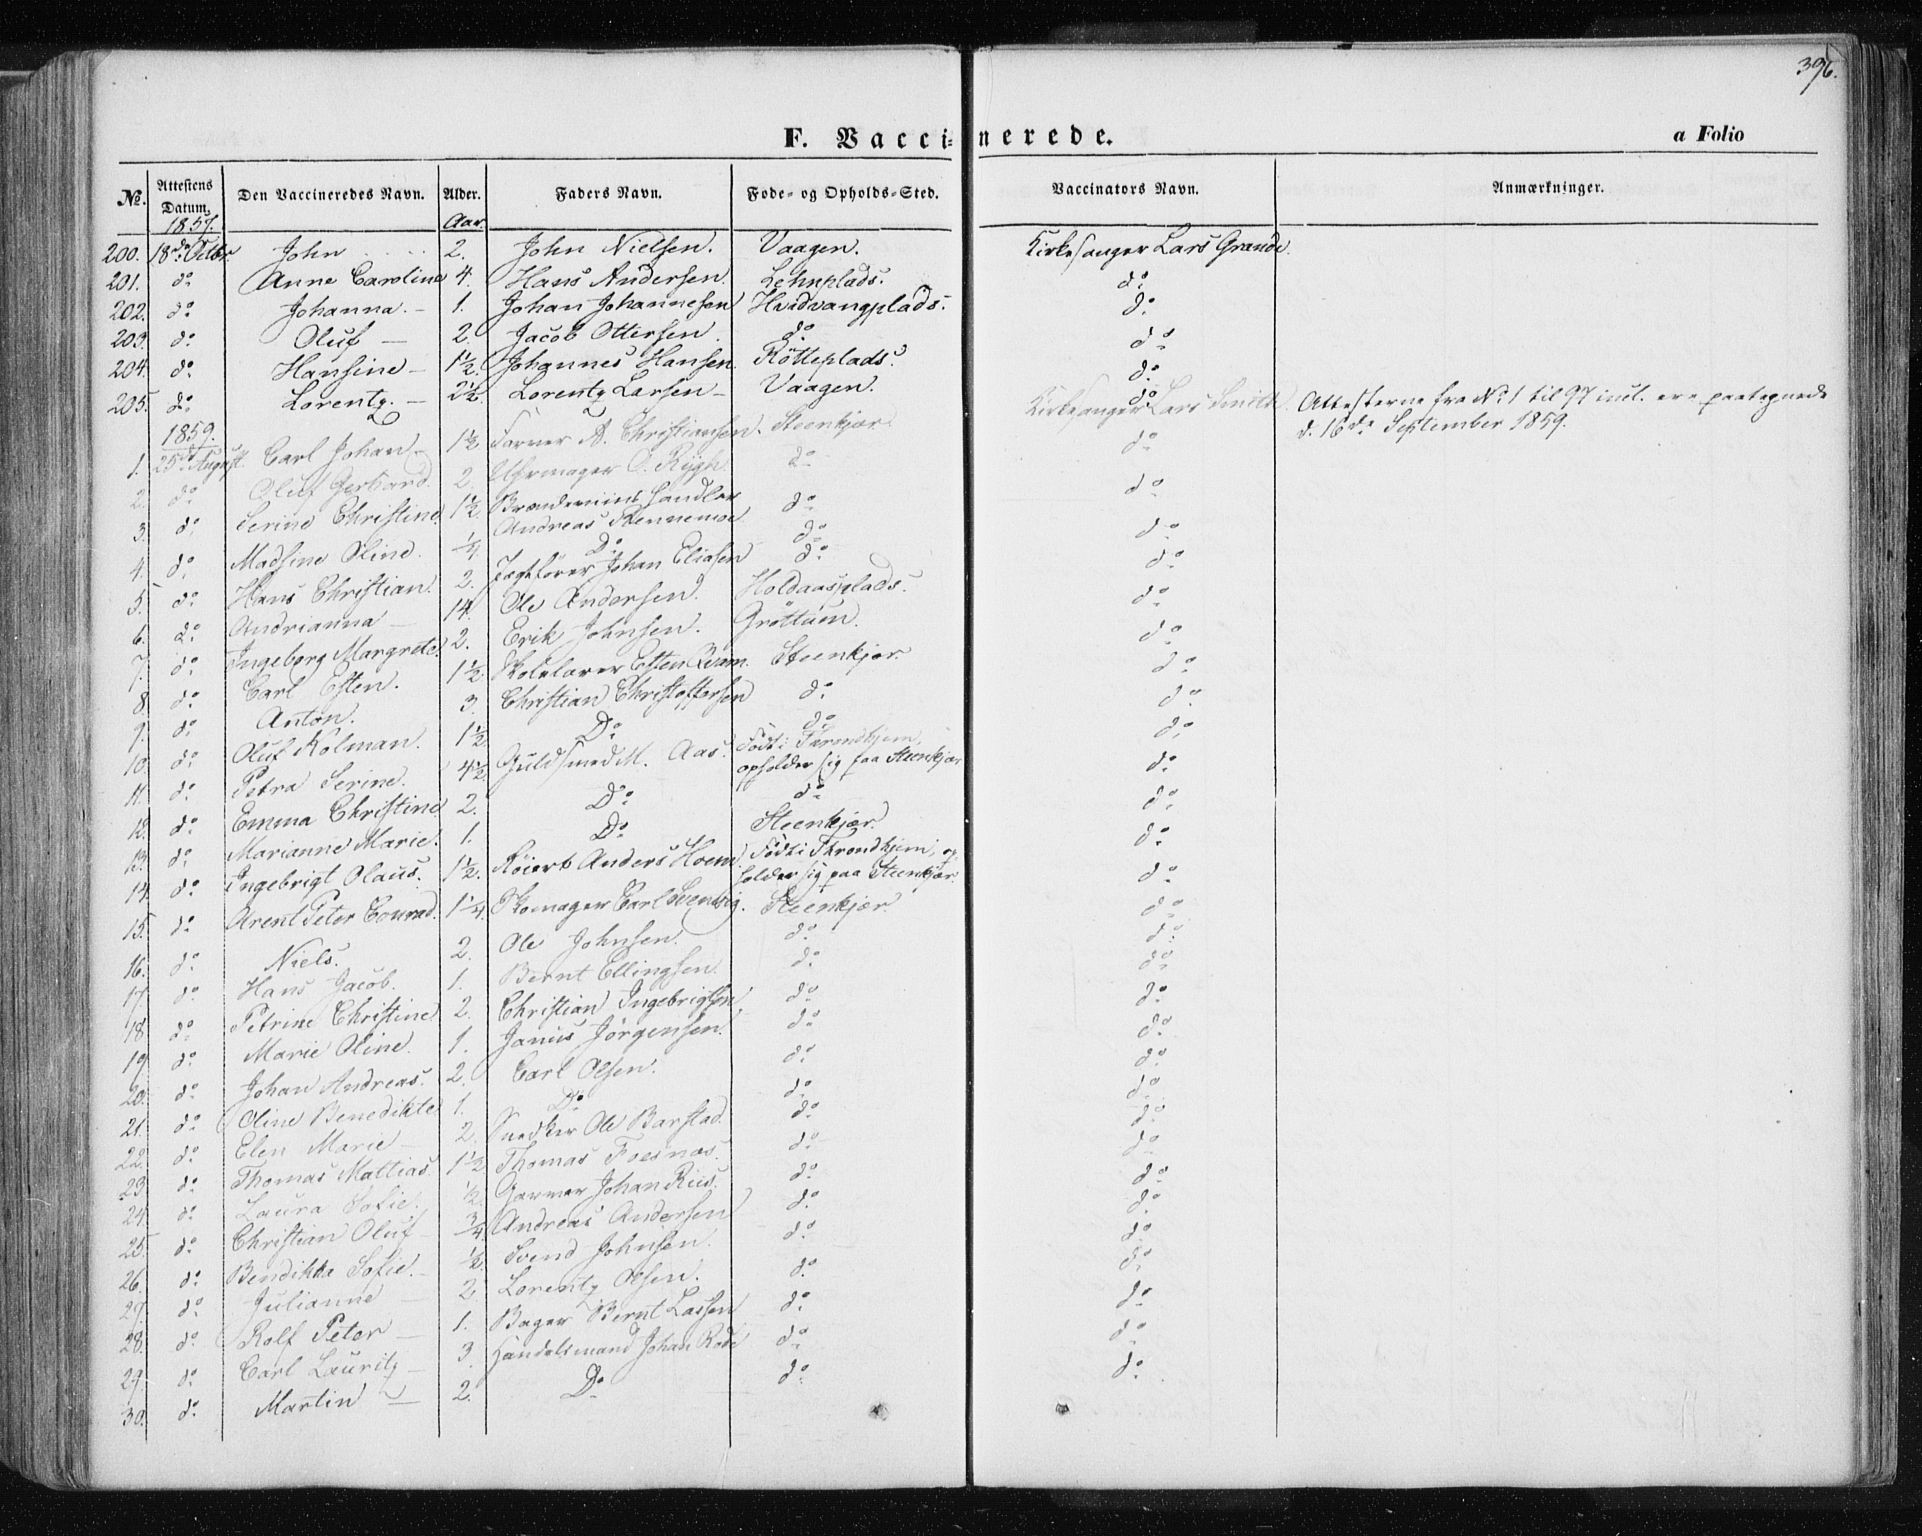 396.
F. Vaccinerede.
a Folio
No. Attestens Datum. Den Vaccineredes Navn. Alder. Faders Navn. Føde- og Opholds-Sted. Vaccinators Navn. Anmærkninger.
1857. Aar.
200. 18de Octbr John 2. John Nielsen. Vaagen. Kirkesanger Lars Grande.
201. do Anne Caroline 4. Hans Andersen. Lehnplads. do
202. do Johanna. 1. Johan Johannesen Hvidvangplads. do
203. do Oluf 2. Jacob Ottersen. do do
204. do Hansine 1½. Johannes Hansen. Rötteplads. do
205. do Lorentz. 2½. Lorentz Larsen Vaagen. do
1859. Kirkesanger Lars Attesterne fra No 1 til 97 incl. ere paategnede
d. 16de September 1859.
1. 25de August Carl Johan 1½ Farver A. Christiansen. Steenkjær. do
2. do Oluf Gerhard. 2. Uhrmager O. Rygh. do do
3. do Serine Christine. 1½. Brændeviinshandler
Andreas Rennemoe do do
4. do Madsine Oline. ¼. Do do do
5. do Hans Christian. 2. Jægtfører Johan Eliasen do do
6. do Andrianna 14. Ole Andersen. Holdaasplads. do
7. do Ingeborg Margrete. 2. Erik Johnsen. Gröttüm. do
8. do Carl Esten. 1½ Skolelærer Esten Kvam. Steenkjær. do
9. do Anton. 3. Christian Christoffersen do do
10. do Oluf Kolman. 1½ Do do do
11. do Petra Serine. 4½ Guldsmed M. Aas. Födt i Throndhjem,
opholder sig paa Steenkjær do
12. do Emma Christine 2. Do do do
13. do Marianne Marie. 1. Do Steenkjær. do
14. do Ingebrigt Olaus. 1½. Anders Hoem. Födt i Throndhjem, op-
holder sig paa Steenkjær. do
15. do Arent Peter Conrad. 1¼ Skomager Carl Steenkjær. do
16. do Niels. 2. Ole Johnsen. do do
17. do Hans Jacob. 1. Bernt Ellingsen. do do
18. do Petrine Christine 2. Christian Ingebrigtsen do do
19. do Marie Oline. 1. Janus Jörgensen. do do
20. do Johan Andreas. 2. Carl Olsen. do do
21. do Oline Benedikte 1. Do do do
22. do Elen Marie 2. Snedker Ole Barstad. do do
23. do Thomas Mattias 1½ Thomas Foesnæs. do do
24. do Laura Sofie. ½. Garver Johan Riis. do do
25. do Christian Oluf ¾ Andreas Andersen do do
26. do Bendikka Sofie. ½ Svend Johnsen. do do
27. do Julianne 2. Lorentz Olsen. do do
28. do Rolf Peter 1. Bager Bernt Lassen do do
29. do Carl Lauritz 3. Handelsmand Johan Rode do do
30. do Martin 2. Do do do